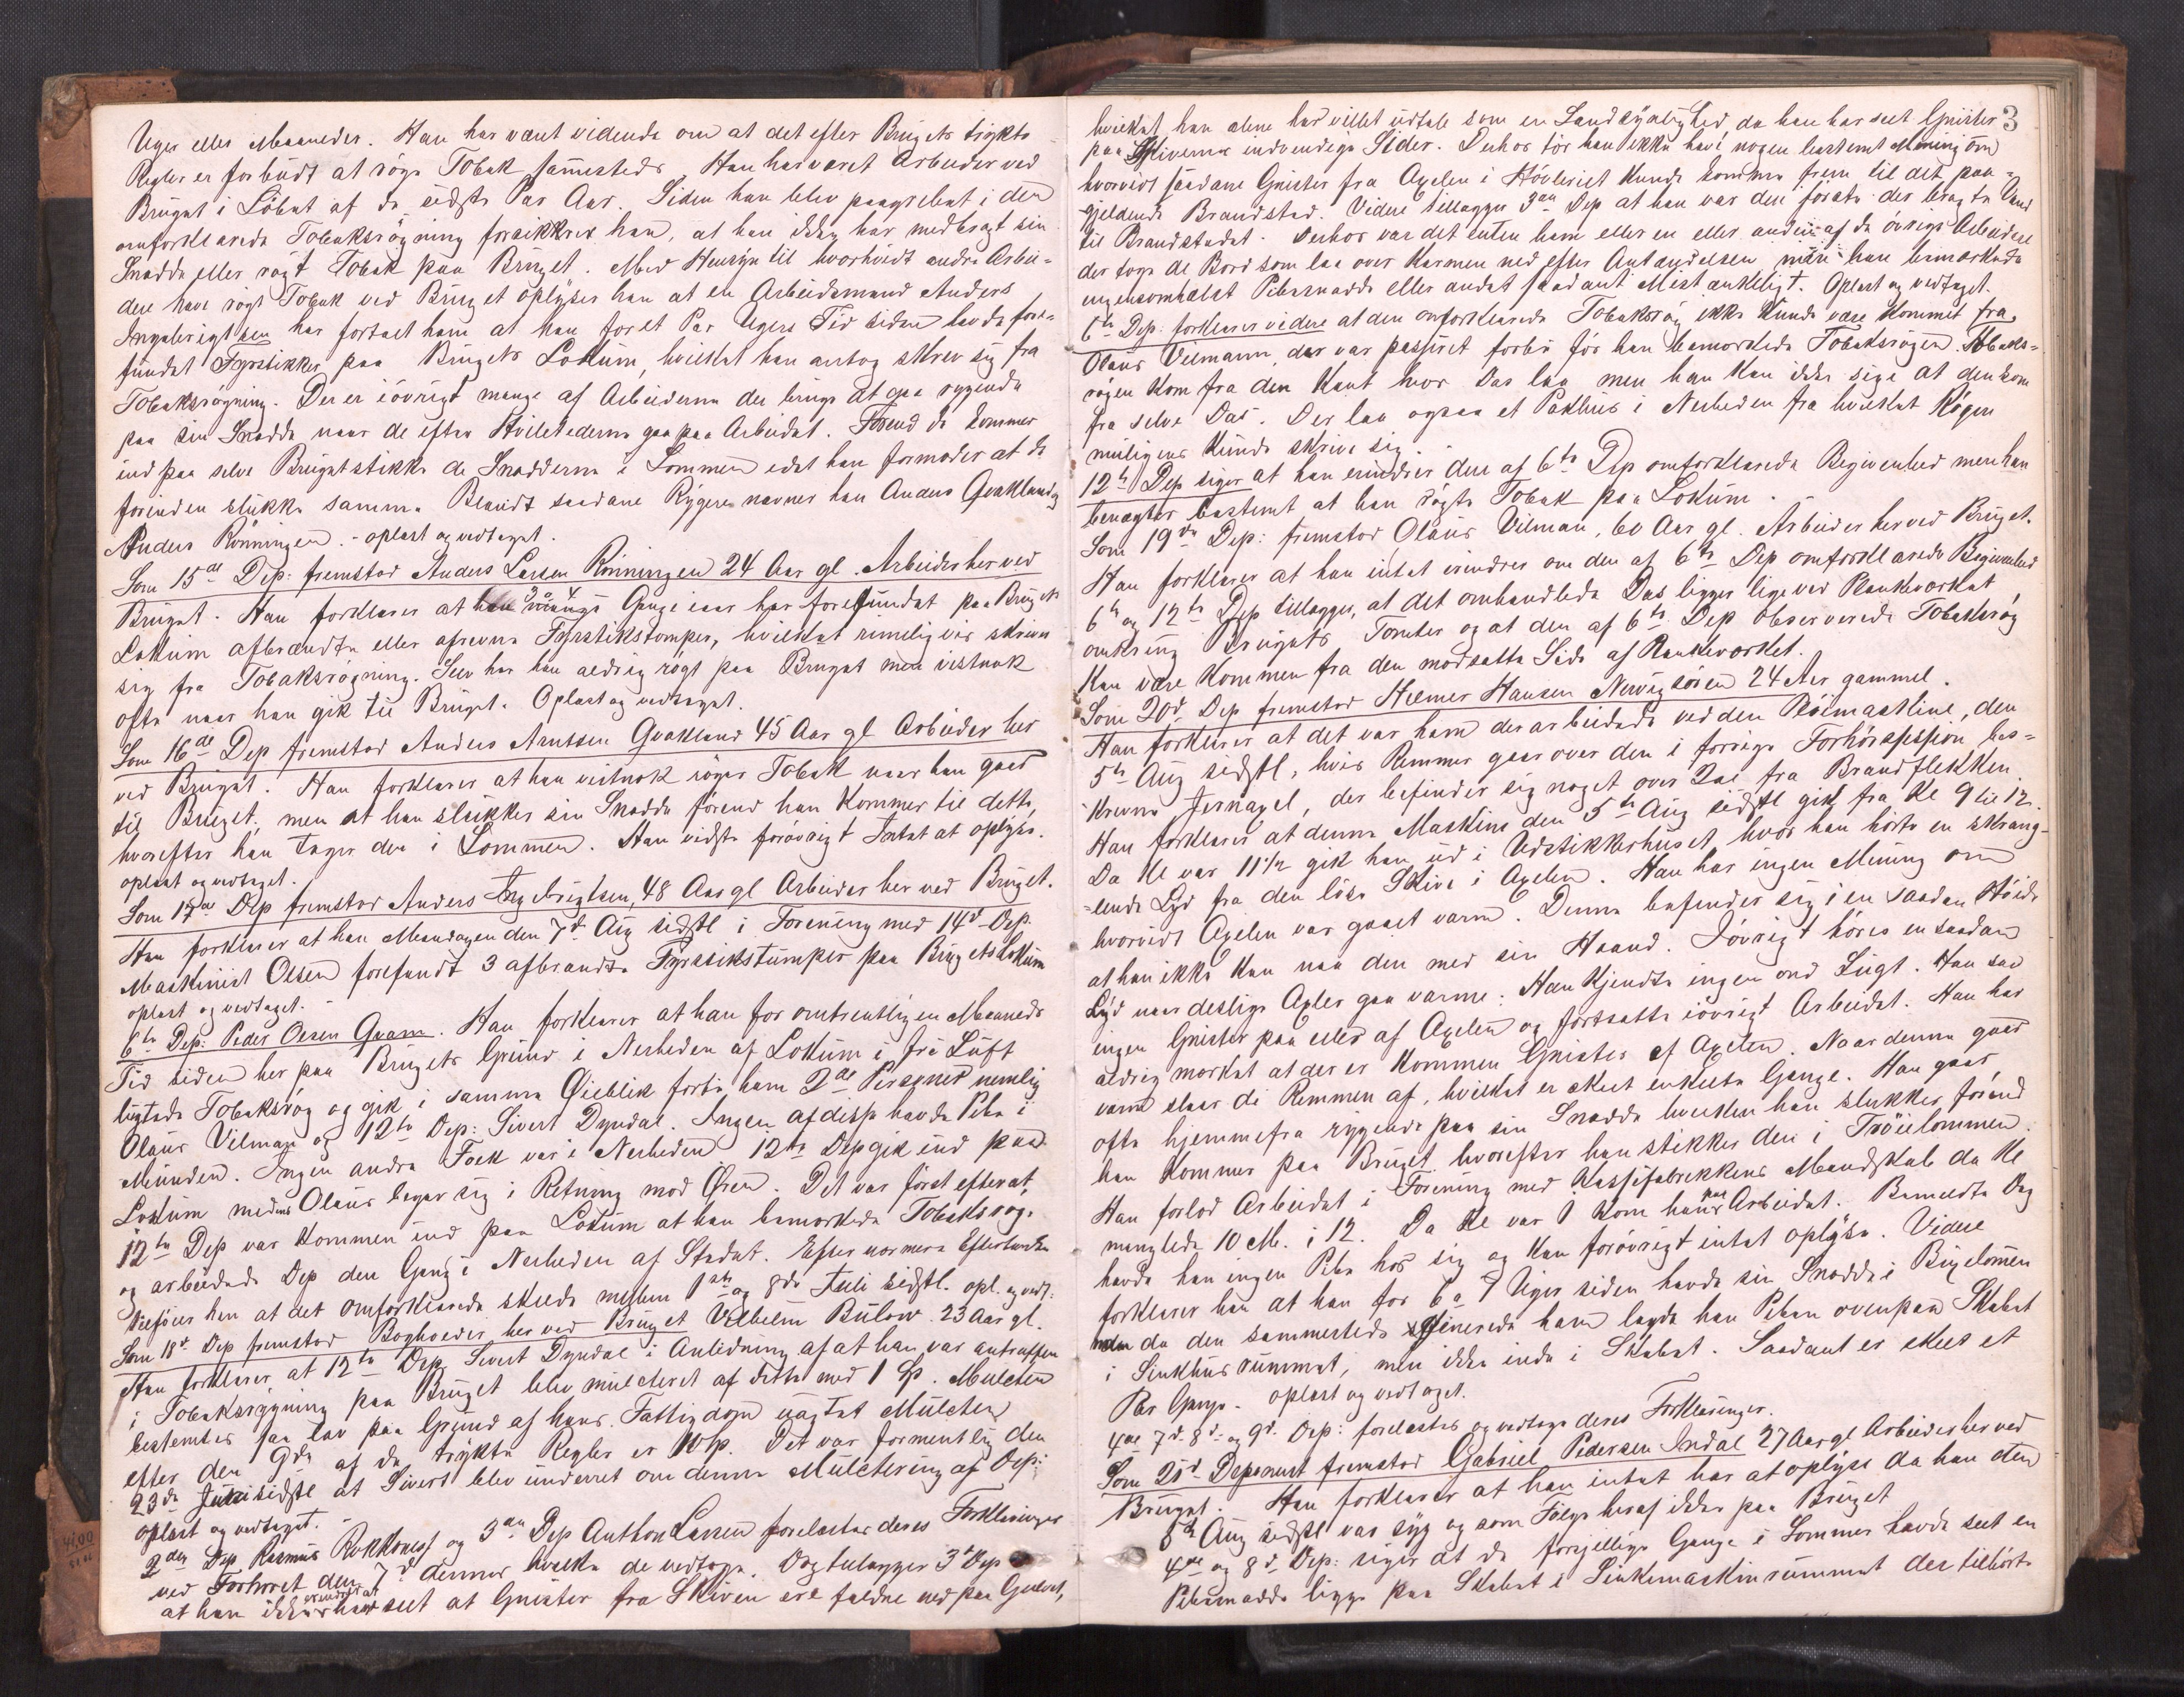 Uger eller Maaneder. Han har været vidende om at det efter Brugets trykte
Regler er forbudt at röge Tobak sammesteds. Han har været Arbeider ved
Bruget i Löbet af de sidste Par Aar. Siden han blev paagrebet i den
omforklarede Tobaksrögning forsikkrer han, at han ikke har medbragt sin
Snadde eller rögt Tobak paa Bruget. Med Hensyn til hvorvidt andre Arbei-
dere have rögt Tobak ved Bruget oplyser han at en Arbeidsmand Anders
Ingebrigtsen har fortalt ham at han for et Par Ugers Tid siden havde fore-
fundet Fyrstikker paa Brugets Lokum, hvilket han antog skrev sig fra
Tobaksrögning. Der er iövrigt mange af Arbeiderne der bruge at gaa rygende
paa sin Snadde naar de efter Hviletiderne gaa paa Arbeidet. Förend de kommer
ind paa selve Bruget stikke de Snadderne i Lommen idet han formoder at de
forinden slukke samme. Blandt saadane Rygere nævner han Anders Gvakland og
Anders Rönningen. - oplæst og vedtaget.
Som 15de Dep: fremstod Anders Larsen Rönningen 24 Aar gl. Arbeider her ved
Bruget. Han forklarer at han 3 a 4 Gange iaar har forefundet paa Brugets
Lokum afbrændte eller afrevne Fyrstikstomper, hvilket rimeligvis skriver
sig fra Tobaksrögning. Selv har han aldrig rögt paa Bruget men vistnok
ofte naar han gik til Bruget. Oplæst og vedtaget.
Som 16de Dep fremstod Anders Arntsen Gvakland 45 Aar gl Arbeider her
ved Bruget. Han forklarer at han vistnok röger Tobak naar han gaar
til Bruget, men at han slukker sin Snadde förend han kommer til dette,
hvorefter han tager den i Lommen. Han vidste forövrigt Intet at oplyse.
oplæst og vedtaget.
Som 17de Dep fremstod Anders Ingebrigtsen, 48 Aar gl Arbeider her ved Bruget.
Han forklarer at han Mandagen den 7de Aug sidstl i Forening med 14de Dep.
Maskinist Olsen forefandt 3 afbrændte Fyrstikstumper paa Brugets Lokum
oplæst og vedtaget.
6te Dep: Peder Olsen Qvam. Han forklarer at han for omtrentlig en Maaneds
Tid siden her paa Brugets Grund i Nerheden af Lokum i fri Luft
lugtede Tobaksrög og gik i samme Øieblik forbi ham 2de Personer nemlig
Olaus Vilman og 12te Dep: Sivert Dyrdal. Ingen af disse havde Pibe i
Munden. Ingen andre Folk var i Nerheden 12te Dep gik ind paa
Lokum medens Olaus begav sig i Retning mod Øren. Det var först efterat,
12te Dep var kommen ind paa Lokum at han bemærkede Tobaksrög.
og arbeidede Dep den Gang i Nerheden af Stedet. Efter nærmere Eftertanke
tilföier han at det omforklarede skede mellem 1ste og 8de Juli sidstl. opl. og vedt.
Som 18de Dep fremstod Bogholder her ved Bruget Vilhelm Bülow 23 Aar gl.
Han forklarer at 12te Dep Sivert Dyrdal i Anledning af at han var antruffen
i Tobaksrygning paa Bruget blev mulcteret af dette med 1 Sp. Mulcten
bestemtes saa lav paa Grund af hans Fattigdom uagtet Mulcten
efter den 9de af de trykte Regler er 10 Sp. Det var formentlig den
23de Juli sidstl at Sivert blev underret om denne Mulctering af Dep:
oplæst og vedtaget.
2den Dep Rasmus Rokkones og 3die Dep Anthon Larsen forelæstes deres Forklaringer
ved Forhöret den 7de dennes hvilke de vedtoge. Dog tillægger 3die Dep
at han ikke erindrer at have seet at Gnister fra Skiven ere faldne ned paa Gulvet,
3
hvilket han alene har villet udtale som en Sandsynlighed, da han har seet Gnister
paa Skivernes indvendige Sider. Derhos tör han ikke have nogen bestemt Mening om
hvorvidt saadane Gnister fra Axelen i Hövleriet kunde komme frem til det paa-
gjeldende Brandsted. Videre tillægger 3die Dep at han var den förste der bragte Vand
til Brandstedet. Derhos var det enten ham eller en eller anden af de övrige Arbeidere
der toge de Bord som laa over Karmen ned efter Antændelsen men han bemærkede
ingensomhelst Pibesnadde eller andet saadant Mistænkeligt. Oplæst og vedtaget.
6te Dep: forklarer videre at den omforklarede Tobaksrög ikke kunde være kommet fra
Olaus Vilmann, der var passeret forbi för han bemærkede Tobaksrögen. Tobaks-
rögen kom fra den Kant hvor Das laa men han kan ikke sige at den kom
fra selve Das. Der laa ogsaa et Pakhus i Nerheden fra hvilket Rögen
muligens kunde skrive sig.
12te Dep siger at han erindrer den af 6te Dep omforklarede Begivenhed men han
benægter bestemt at han rögte Tobak paa Lokum.
Som 19de Dep: fremstod Olaus Vilman, 60 Aar gl. Arbeider her ved Bruget.
Han forklarer at han intet erindrer om den af 6te Dep omforklarede Begivenhed
6te og 12te Dep tillægger, at det omhandlede Das ligger lige ved Plankeværket
omkring Brugets Tomter og at den af 6te Dep observerede Tobaksrög
kan være kommen fra den modsatte Side af Plankeværket.
Som 20de Dep fremstod Helmer Hansen Nervigsören 24 Aar gammel.
Han forklarer at det var ham der arbeidede ved den Plöiemaskine, den
5te Aug sidstl, hvis Remmer gaar over den i forrige Forhörssession bes-
krevne Jernaxel, der befinder sig noget over 2 Al fra Brandflekken.
Han forklarer at denne Maskine den 5te Aug sidstl gik fra Kl 9 til 12.
Da Kl var 11 1/2 gik han ud i Vedstikkerhuset hvor han hörte en skrang-
lende Lyd fra den löse Skive i Axelen. Han har ingen Mening om
hvorvidt Axelen var gaaet varm. Denne befinder sig i en saadan Höide
at han ikke kan naa den med sin Haand. Iövrigt höres en saadan
Lyd naar deslige Axler gaa varme. Han kjendte ingen ond Lugt. Han saa
ingen Gnister paa eller af Axelen og fortsatte iövrigt Arbeidet. Han har
aldrig mærket at der er kommen Gnister af Axelen. Naar denne gaar
varm slaar de Remmen af, hvilket er skeet enkelte Gange. Han gaar
ofte hjemmefra rygende paa sin Snadde hvilken han slukker förend
han kommer paa Bruget hvorefter han stikker den i Tröielommen.
Han forlod Arbeidet i Forening med Kassefabrikkens Mandskab da Kl
manglede 10 M. i 12. Da Kl var 1 kom han paa Arbeidet. Bemeldte Dag
havde han ingen Pibe hos sig og kan forövrigt intet oplyse. Videre
forklarer han at han for 6 a 7 Uger siden havde sin Snadde i Buxelommen
men da den sammesteds generede ham lagde han Piben ovenpaa Skabet
i Sinkhusrummet, men ikke inde i Skabet. Saadant er skeet et
Par Gange. oplæst og vedtaget.
4de 7de 8de og 9de Dep: forelæstes og vedtoge deres Forklaringer.
Som 21de Deponent fremstod Gabriel Pedersen Indal 27 Aar gl Arbeider her ved
Bruget. Han forklarer at han intet har at oplyse da han den
5te Aug sidstl var syg og som Fölge heraf ikke paa Bruget
4de og 8de Dep: siger at de forsjellige Gange i Sommer havde seet en
Pibesnadde ligge paa Skabet i Sinkemaskinrummet der tilhörte